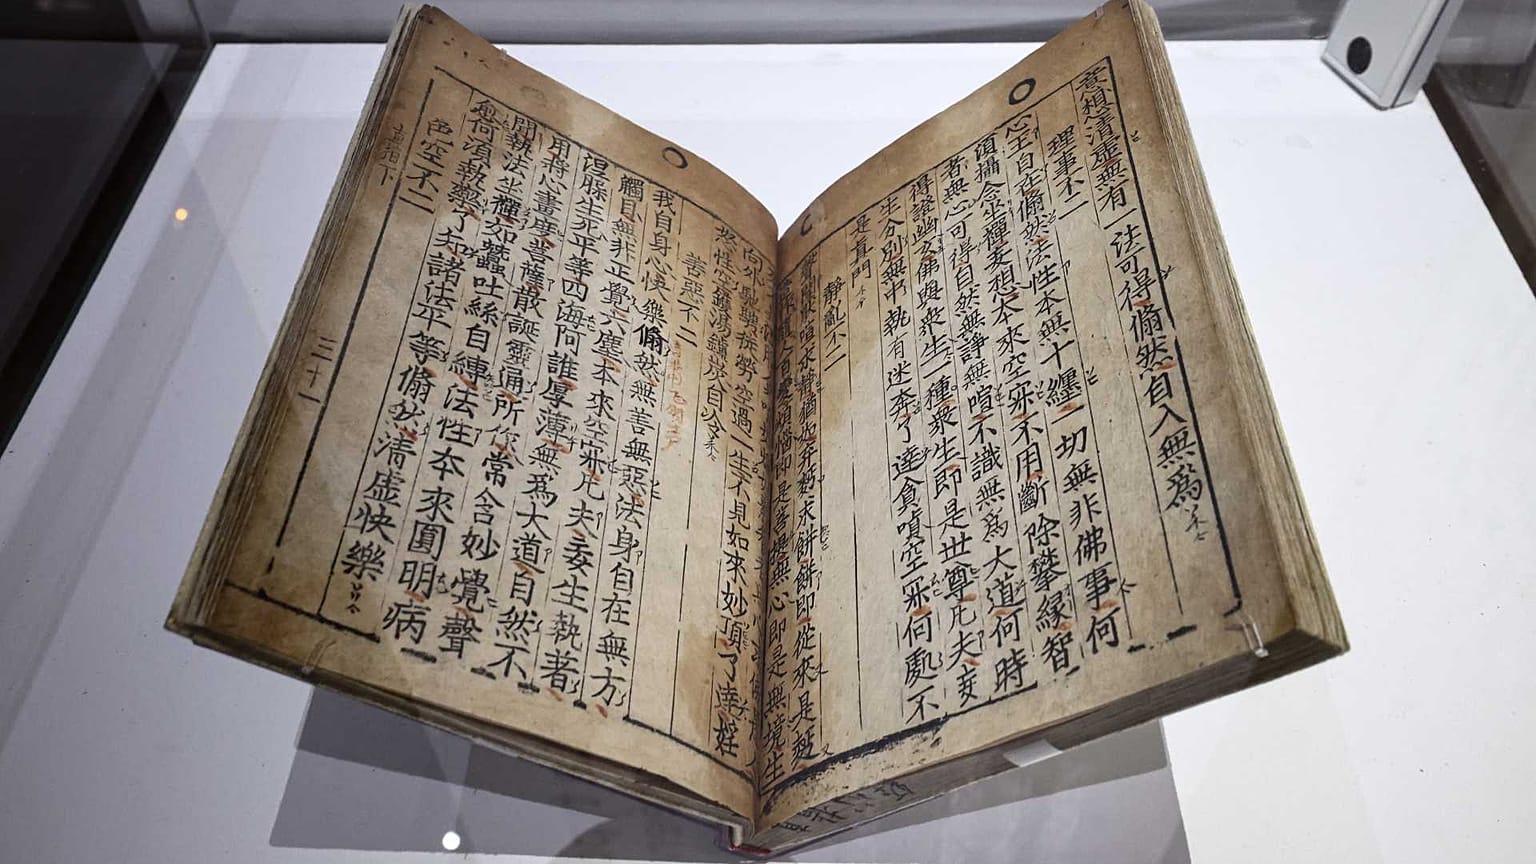 意想清虛無有一法可得翛然自入無爲
理事不二
心王自在翛然法性本無十纏一切無非佛事何
須攝念坐禪妄想本來空寂不用斷除攀緣智
者無心可得自然無諍無喧不識無爲大道何時
得證幽玄佛與衆生一種衆生即是世尊凡夫妄
生分別無中執有迷奔了達貪嗔空寂何處不
是眞門
靜亂不二
聲聞厭喧求靜猶如弃麪求餠餠即從來是麪
人百變煩惱即是菩提無心即是無境生
向外馳騁徒勞空過一生不見如來妙頂了達婬
慾性空鑊湯爐炭自冷
善惡不二
我自身心快樂翛然無善無惡法身自在無方
觸目無非正覺六塵本來空寂凡夫妄生執著
涅槃生死平等四海阿誰厚薄無爲大道自然不
用將心畫度菩薩散誕靈通所作常含妙覺聲
聞執法坐禪如蠶吐絲自縛法性本來圓明病
愈何須執藥了知諸法平等翛然清虛快樂
色空不二
直指下 三十一